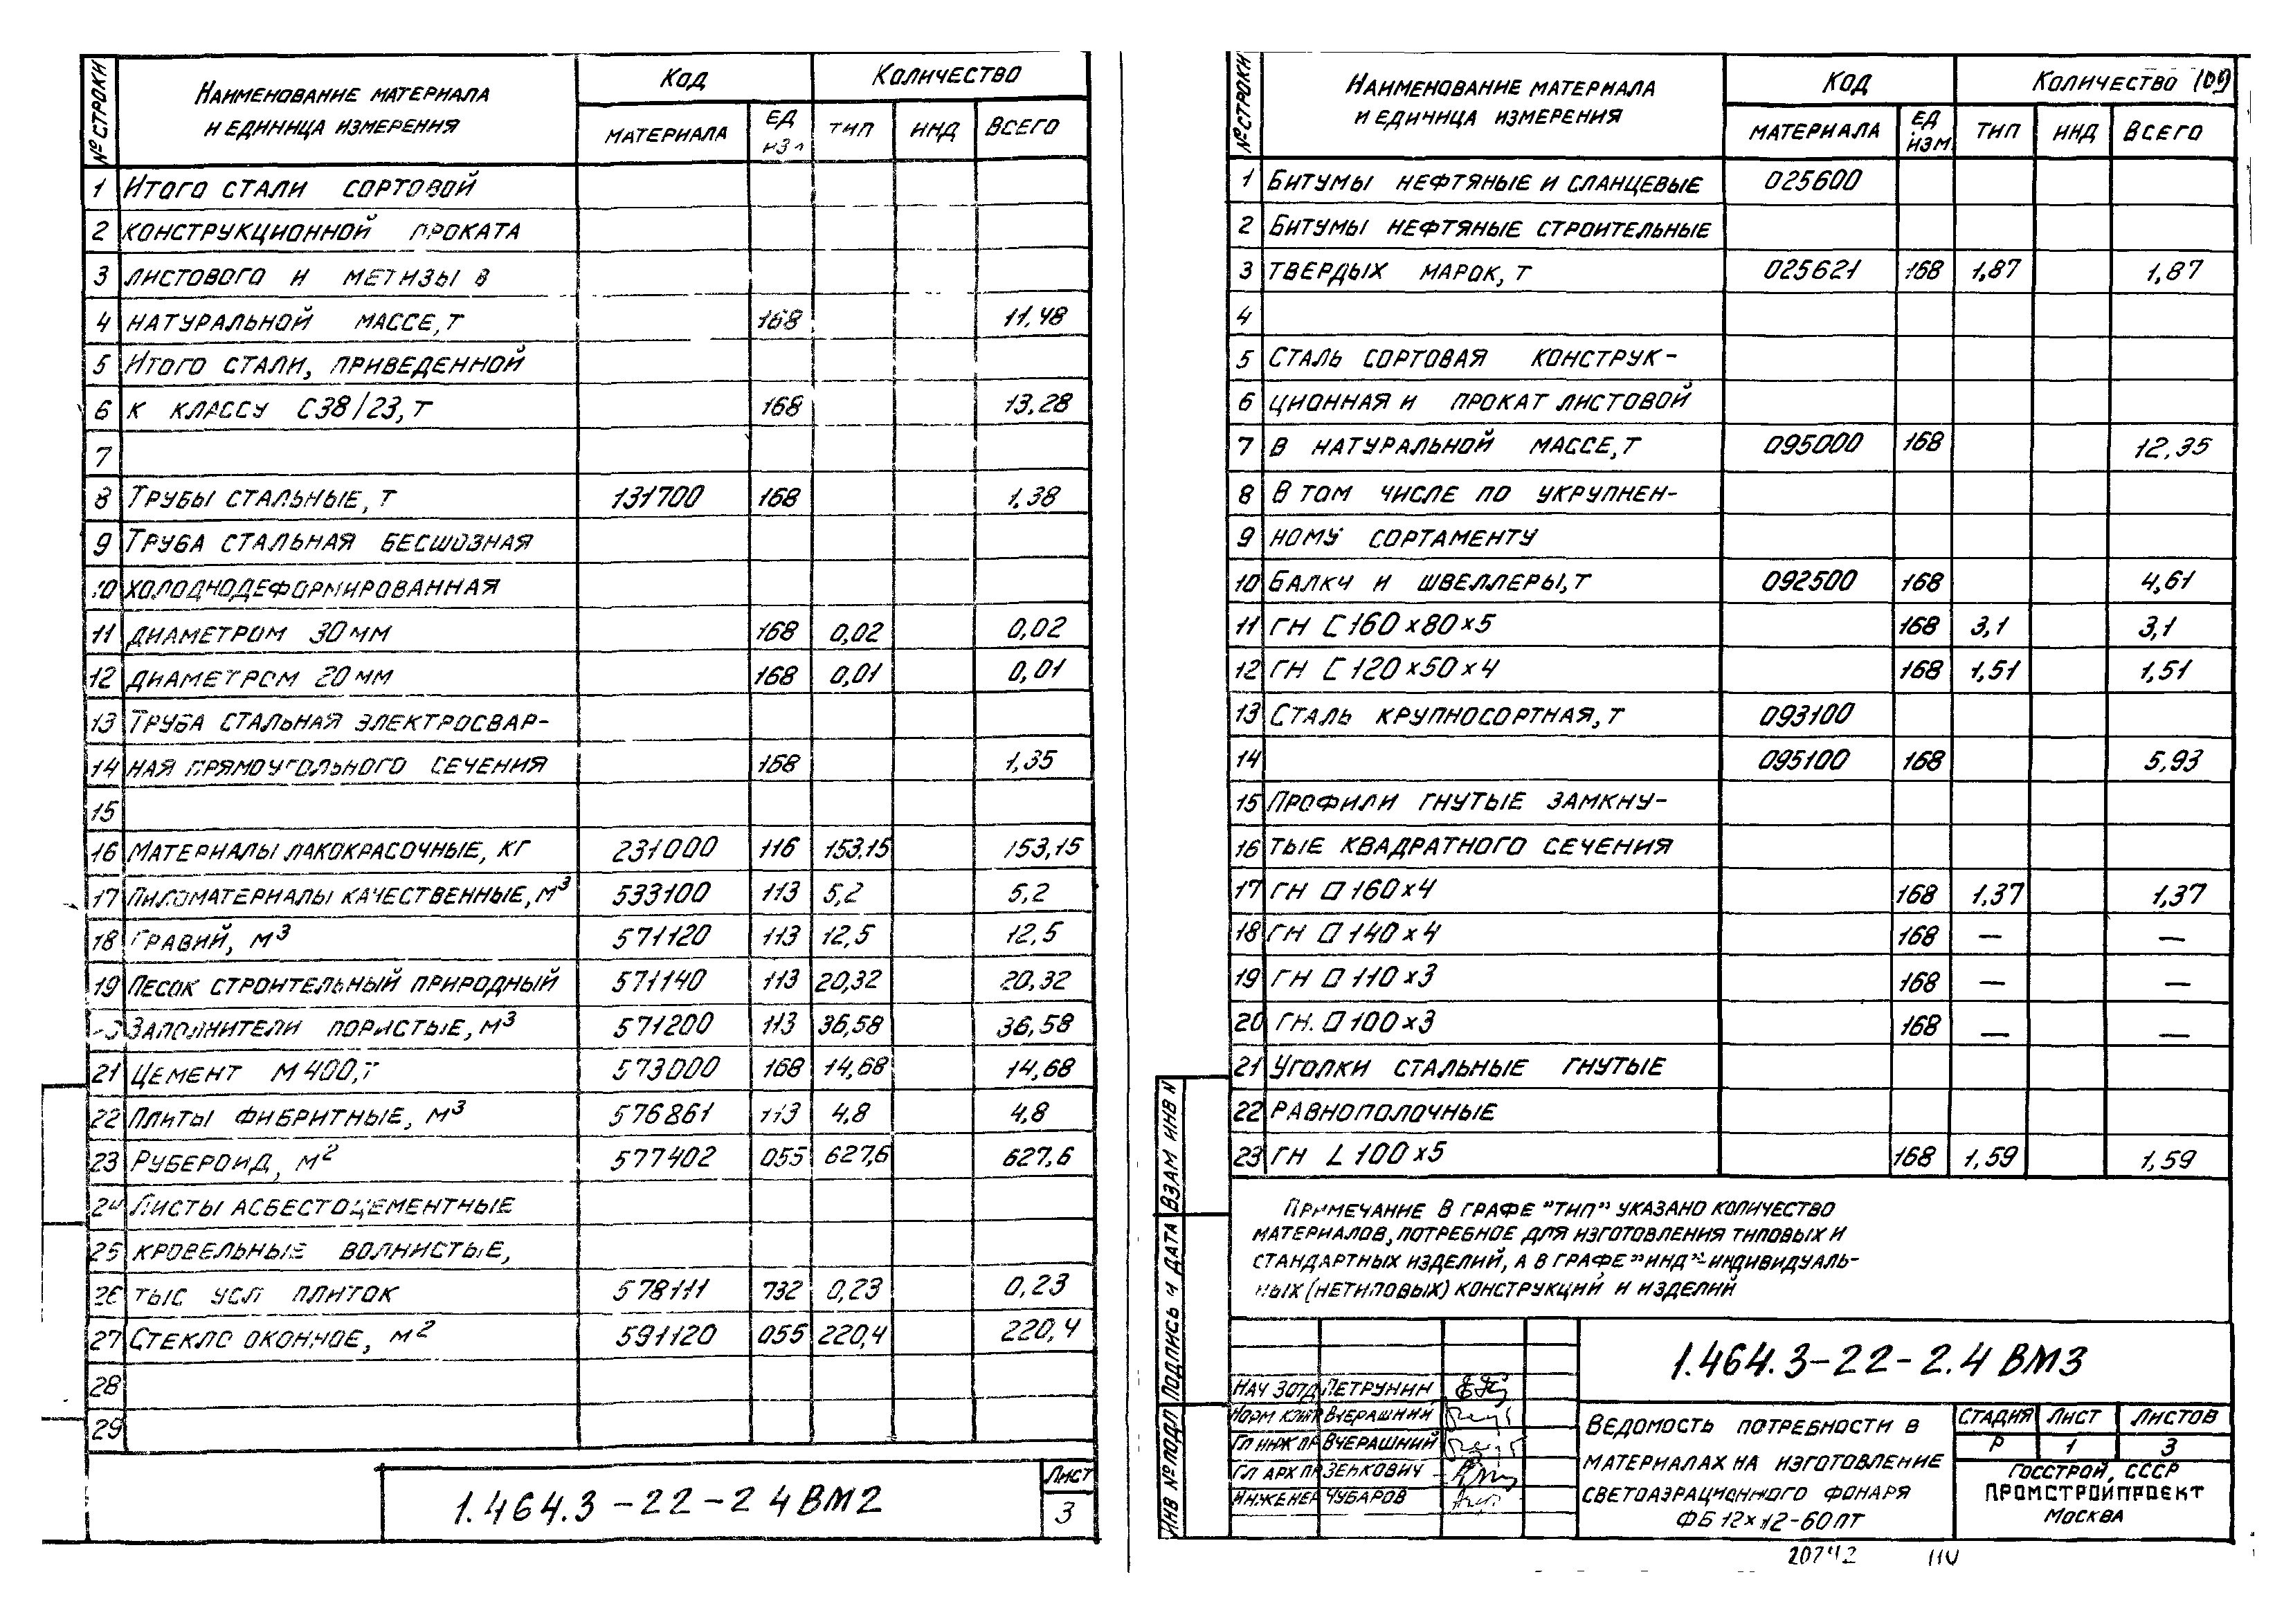 № строки Наименование материала и единица измерения Код Количество
материала ед изм тип инд Всего
1 Итого стали сортовой
2 конструкционной проката
3 листового и метизы в
4 натуральной массе, т 168 11,48
5 Итого стали, приведенной
6 к классу С38/23, т 168 13,28
7
8 Трубы стальные, т 131700 168 1,38
9 Труба стальная бесшовная
10 холоднодеформированная
11 диаметром 30 мм 168 0,02 0,02
12 диаметром 20 мм 168 0,01 0,01
13 Труба стальная электросвар-
14 ная прямоугольного сечения 168 1,35
15
16 Материалы лакокрасочные, кг 231000 116 153,15 153,15
17 Пиломатериалы качественные, м³ 533100 113 5,2 5,2
18 Гравий, м³ 571120 113 12,5 12,5
19 Песок строительный природный 571140 113 20,32 20,32
Заполнители пористые, м³ 571200 113 36,58 36,58
21 Цемент М400, т 573000 168 14,68 14,68
22 Плиты фибритные, м³ 576861 113 4,8 4,8
23 Рубероид, м² 577402 055 627,6 627,6
24 Листы асбестоцементные
25 кровельные волнистые,
26 тыс усл плиток 578111 732 0,23 0,23
27 Стекло оконное, м² 591120 055 220,4 220,4
28
29
1.464.3-22-2 4 ВМ2
Лист
3
№ строки Наименование материала и единица измерения Код Количество 109
материала ед изм тип инд Всего
1 Битумы нефтяные и сланцевые 025600
2 Битумы нефтяные строительные
3 твердых марок, т 025621 168 1,87 1,87
4
5 Сталь сортовая конструк-
6 ционная и прокат листовой
7 в натуральной массе, т 095000 168 12,35
8 В том числе по укрупнен-
9 ному сортаменту
10 Балки и швеллеры, т 092500 168 4,61
11 ГН [ 160×80×5 168 3,1 3,1
12 ГН [ 120×50×4 168 1,51 1,51
13 Сталь крупносортная, т 093100
14 095100 168 5,93
15 Профили гнутые замкну-
16 тые квадратного сечения
17 ГН □ 160×4 168 1,37 1,37
18 ГН □ 140×4 168 — —
19 ГН □ 110×3 168 — —
20 ГН. □ 100×3 168 — —
21 Уголки стальные гнутые
22 равнополочные
23 ГН L 100×5 168 1,59 1,59
Примечание В графе "тип" указано количество
материалов, потребное для изготовления типовых и
стандартных изделий, а в графе "инд"- индивидуаль-
ных (нетиповых) конструкций и изделий
Взам инв N
Подпись и дата
Инв № подл
Нач 3отд Петрунин
Норм контр Вчерашний
Гл инж пр Вчерашний
Гл арх пр Зенкович
Инженер Чубаров
1.464.3-22-2.4 ВМ3
Ведомость потребности в
материалах на изготовление
светоаэрационного фонаря
ФБ12×12-60ПТ
Стадия Лист Листов
Р 1 3
Госстрой, СССР
Промстройпроект
Москва
20742